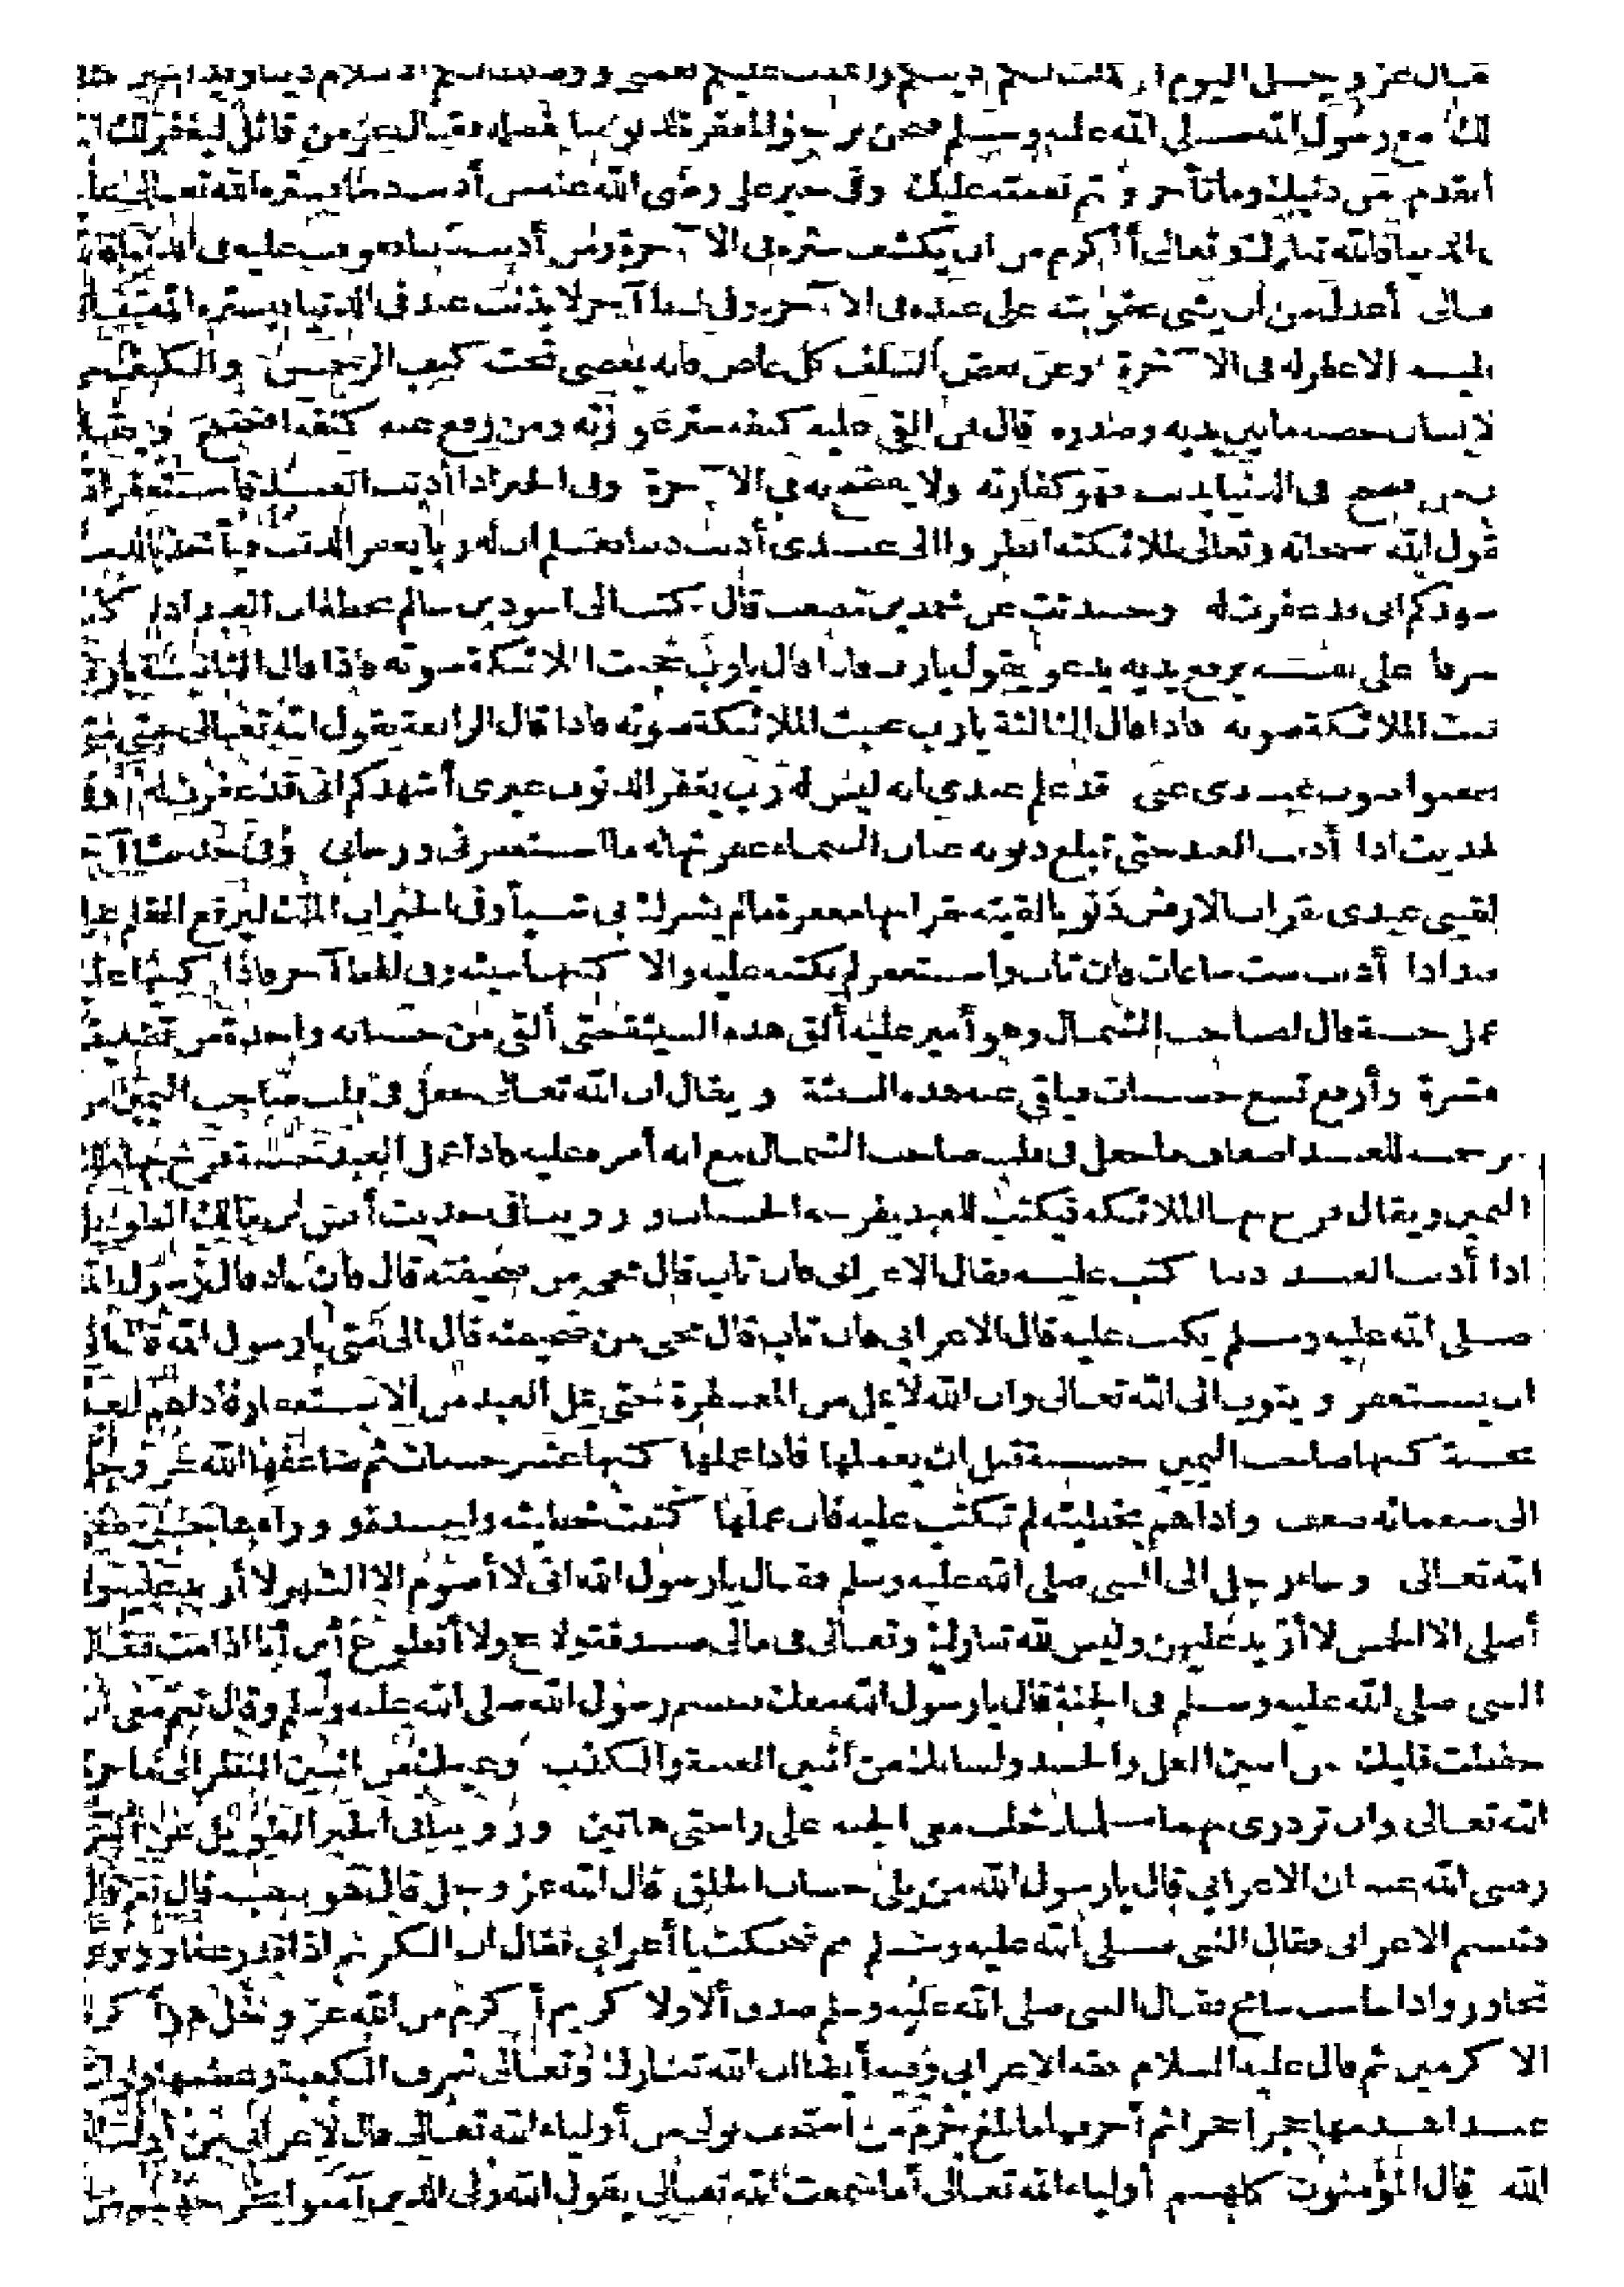 فقال عز وجل اليوم أكملت لكم دينكم وأتممت عليكم نعمتي ورضيت لكم الاسلام دينا
لك مع رسول الله صلى الله عليه وسلم فنحن نرجو المغفرة لذنوبنا بفضله فقال عز من قائل ليغفر لك
ما تقدم من ذنبك وما تأخر ويتم نعمته عليك وفى خبر على رضى الله عنه من أذنب ذنبا فستره الله تعالى عليه
فى الدنيا فالله تبارك وتعالى أكرم من ان يكشف ستره فى الا خرة ومن أذنب ذنبا فعوقب عليه فى الدنيا فالله
تعالى أعدل من أن يثنى عقوبته على عبده فى الا خرة وفى لفظ آخر لا يذنب عبد فى الدنيا فيستره الله تعالى
عليه الا غفر له فى الا خرة وعن بعض السلف كل عاص فانه يعصى تحت كنف الرحمن والكنف من
الانسان حضنه ما بين يديه وصدره قال فمن ألقى عليه كنفه ستر عورته ومن رفع عنه كنفه افتضح
ومن فضح فى الدنيا بذنب فهو كفارته ولا يفضح به فى الا خرة وفى الخبر اذا أذنب العبد فاستغفر الله
يقول الله سبحانه وتعالى لملائكته انظروا الى عبدى أذنب ذنبا فعلم ان له ربا يغفر الذنب ويأخذ بالذنب
أشهدكم انى قد غفرت له وحدثت عن محمد بن مصعب قال كتب الى اسود بن سالم بخطه ان العبد اذا كان
مسرفا على نفسه يرفع يديه يدعو يقول يارب فاذا قال يارب حجبت الملائكة صوته فاذا قال الثانية يارب
حجبت الملائكة صوته فاذا قال الثالثة يارب حجبت الملائكة صوته فاذا قال الرابعة يقول الله تعالى حتى متى
تحجبوا صوت عبدى عنى قد علم عبدى انه ليس له رب يغفر الذنوب غيرى أشهدكم انى قد غفرت له
الحديث اذا أذنب العبد حتى تبلغ ذنوبه عنان السماء غفرتها له ما استغفرنى ورجانى وفى حديث آخر
لو لقينى عبدى بقراب الارض ذنوبا لقيته بقرابها مغفرة ما لم يشرك بى شيأ وفى الخبر ان الملك ليرفع القلم عن
العبد اذا أذنب ست ساعات فان تاب واستغفر لم يكتبه عليه والا كتبها سيئة وفى لفظ آخر فاذا كتبها عليه
عمل حسنة قال لصاحب الشمال وهو أمير عليه ألق هذه السيئة حتى ألقى من حسناته واحدة من تضعيف
عشرة وأرفع تسع حسنات فيلقى عنه هذه السيئة ويقال ان الله تعالى جعل فى قلب صاحب اليمين من
الرحمة للعبد أضعاف ما جعل فى قلب صاحب الشمال مع انه أمره عليه فاذا عمل العبد حسنة فرح بها
اليمين ويقال فرح بها الملائكة فيكتب للعبد بفرحه الحسنات وروينا فى حديث أنس بن مالك الطويل
اذا أذنب العبد ذنبا كتب عليه فقال الاعرابى فان تاب قال محى من صحيفته قال فان عاد قال رسول الله
صلى الله عليه وسلم يكتب عليه قال الاعرابى فان تاب قال محى من صحيفته قال الى متى يارسول الله قال الى
ان يستغفر ويتوب الى الله تعالى وان الله لا يمل من المغفرة حتى يمل العبد من الاستغفار فاذا هم العبد
بحسنة كتبها صاحب اليمين حسنة قبل ان يعملها فاذا عملها كتبها عشر حسنات ثم ضاعفها الله عز وجل
الى سبعمائة ضعف واذا هم بخطيئة لم تكتب عليه فان عملها كتبت خطيئة واحدة ووراءها حسن عفو
الله تعالى وجاء رجل الى النبى صلى الله عليه وسلم فقال يارسول الله انى لا أصوم الا الشهر لا أزيد عليه ولا
أصلى الا الخمس لا أزيد عليهن وليس لله تبارك وتعالى فى مالى صدقة ولا حج ولا أتطوع أين أنا اذا مت فقال
النبى صلى الله عليه وسلم فى الجنة قال يارسول الله معك فتبسم رسول الله صلى الله عليه وسلم وقال نعم معى ان
حفظت قلبك من اثنين الغل والحسد ولسانك من اثنين الغيبة والكذب وعينيك من اثنين النظر الى ما حرم
الله تعالى وان تزدرى بهما مسلما دخلت معى الجنة على راحتى هاتين وروينا فى الخبر الطويل عن أنس
رضى الله عنه ان الاعرابى قال يارسول الله من يلى حساب الخلق قال الله عز وجل قال هو بنفسه قال نعم قال
فتبسم الاعرابى فقال النبى صلى الله عليه وسلم مم ضحكت يا أعرابى فقال ان الكريم اذا قدر عفا
تجاوز واذا حاسب سامح فقال النبى صلى الله عليه وسلم صدق ألا ولا كريم أكرم من الله عز وجل هو أكرم
الا كرمين ثم قال عليه السلام فقه الاعرابى وفيه أيضا ان الله تبارك وتعالى شرف الكعبة وعظمها ولو ان
عبدا هدمها حجرا حجرا ثم أحرقها ما بلغ جرم من استخف بولى من أولياء الله تعالى قال الاعرابى من أولياء
الله قال المؤمنون كلهم أولياء الله تعالى أما سمعت الله تعالى يقول الله ولى الذين آمنوا